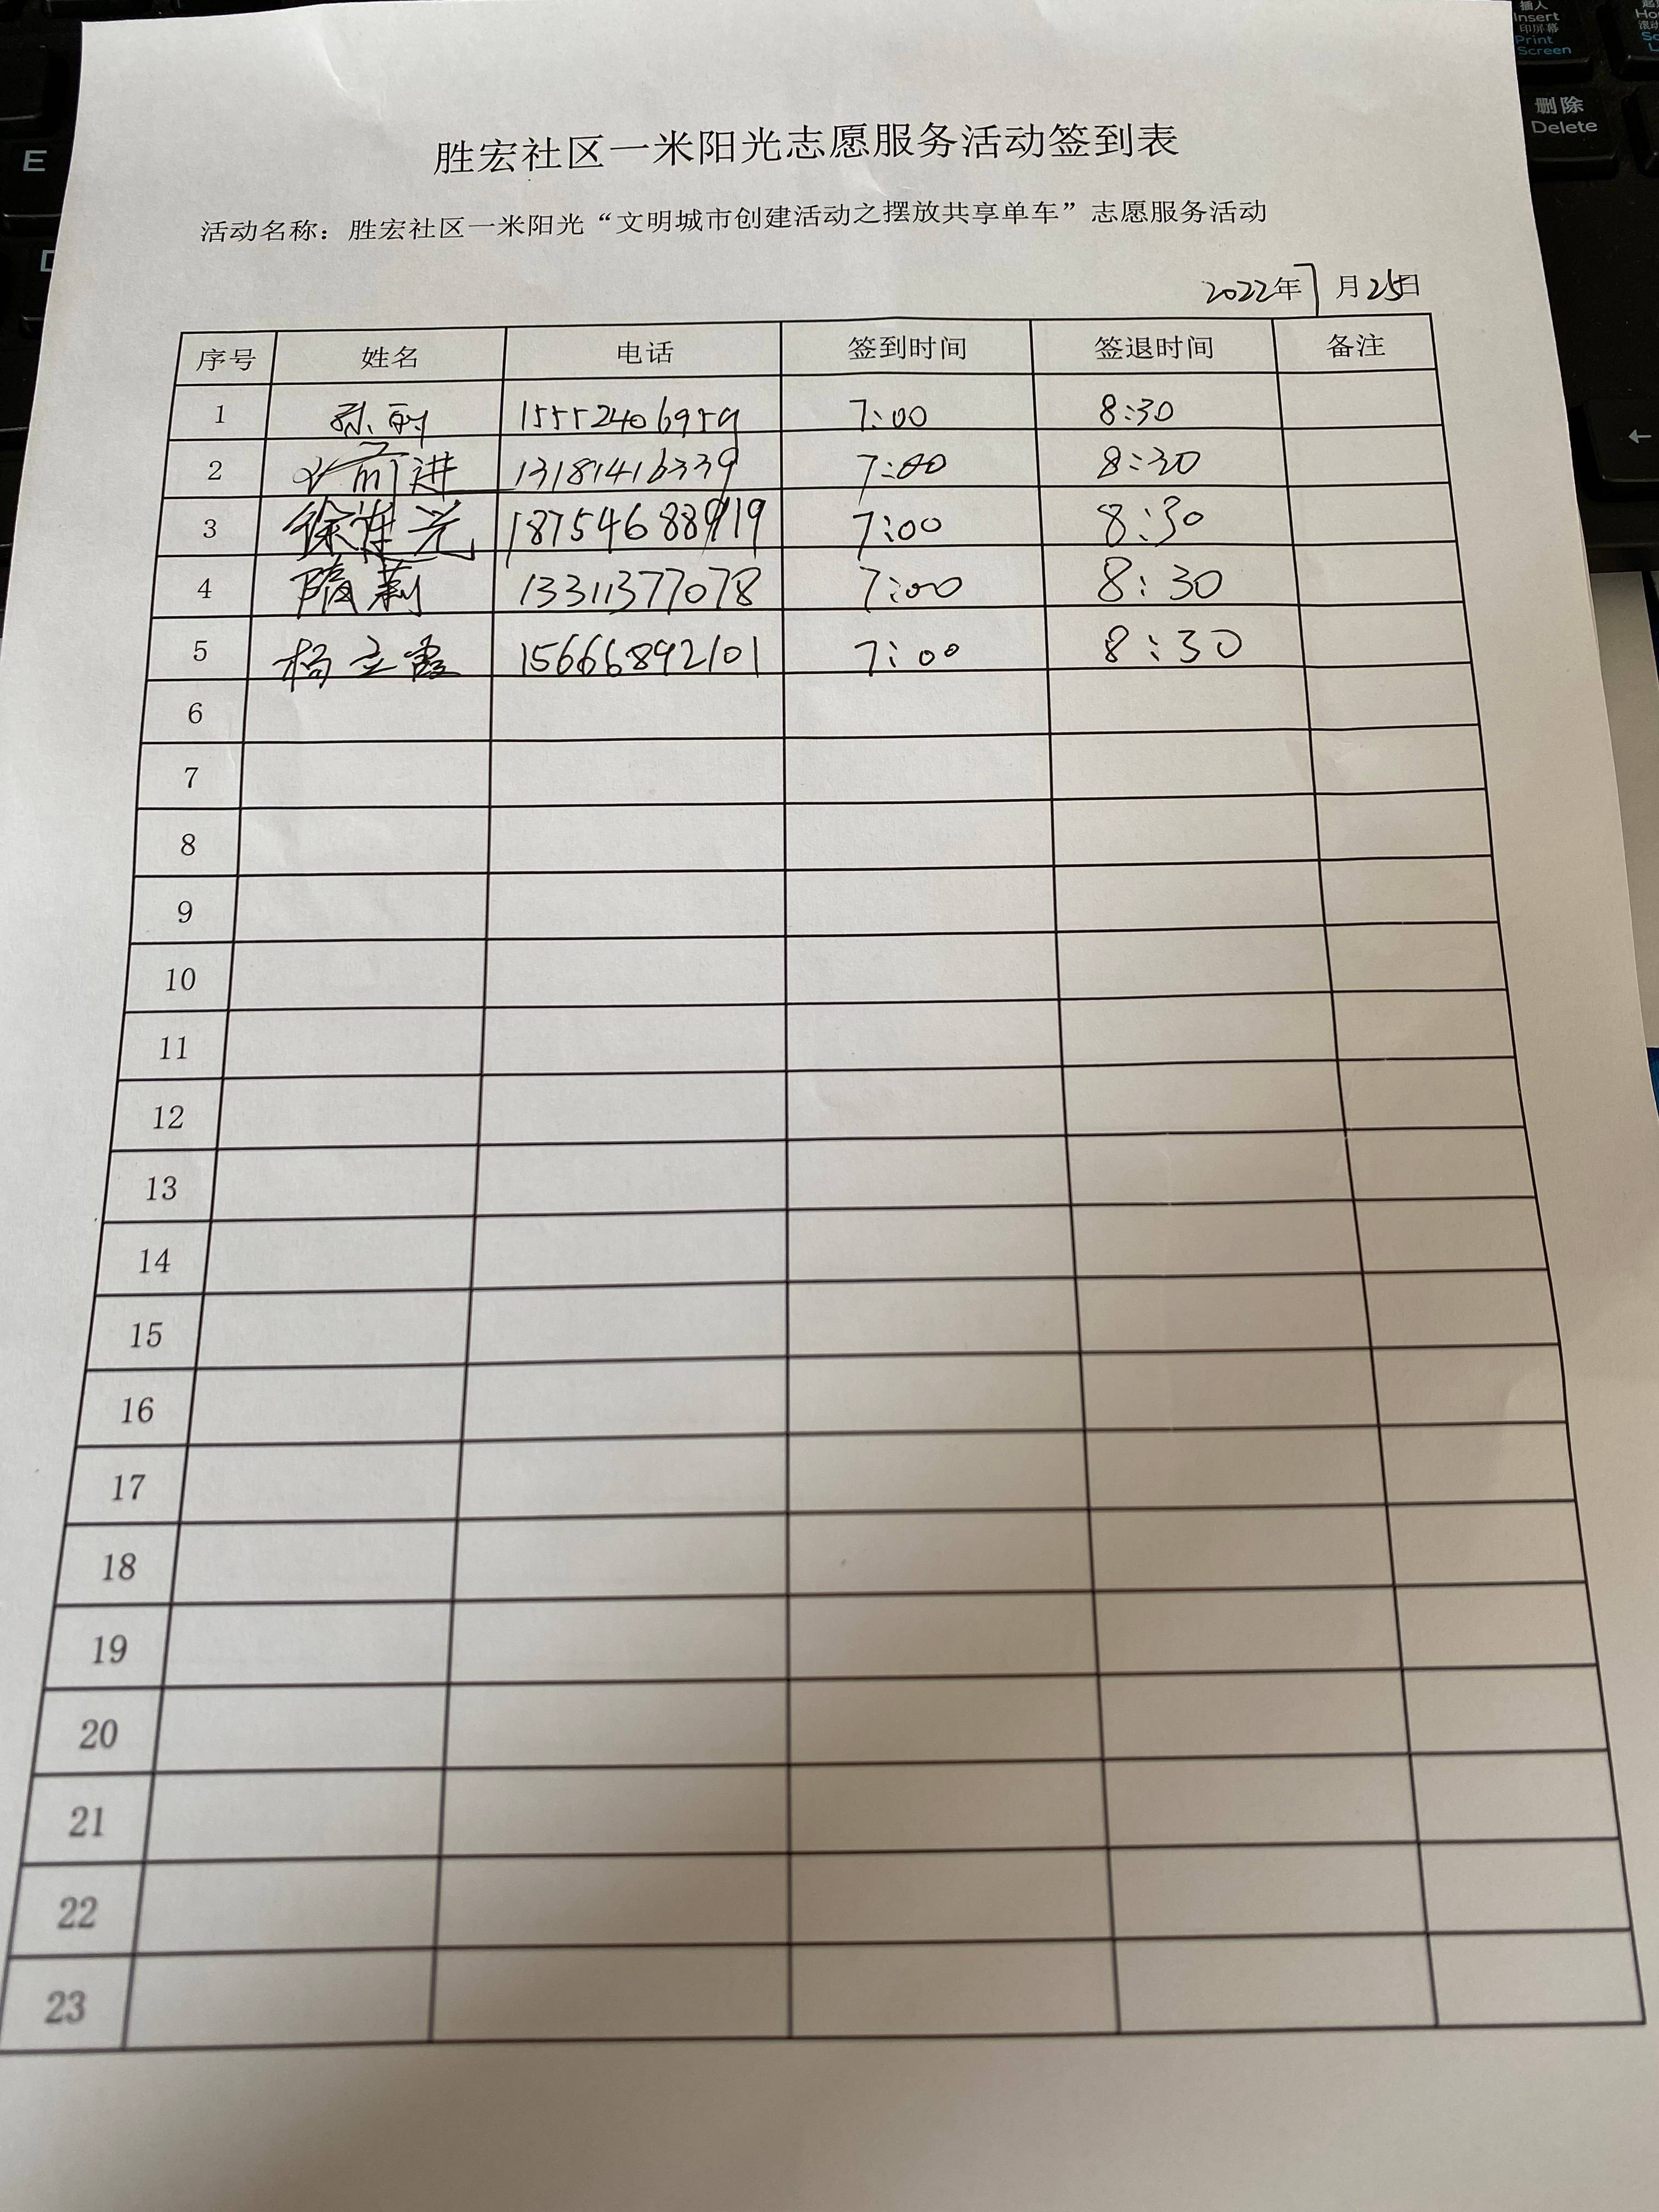 胜宏社区一米阳光志愿服务活动签到表
活动名称：胜宏社区一米阳光“文明城市创建活动之摆放共享单车”志愿服务活动
2022年7月25日
序号 姓名 电话 签到时间 签退时间 备注
1 孙 15552406959 7:00 8:30
2 前进 13181416339 7:00 8:30
3 徐连兴 18754688919 7:00 8:30
4 隋莉 13311377078 7:00 8:30
5 杨立霞 15666892101 7:00 8:30
6
7
8
9
10
11
12
13
14
15
16
17
18
19
20
21
22
23
插入
Insert
印屏幕
Print
Screen
删除
Delete
E